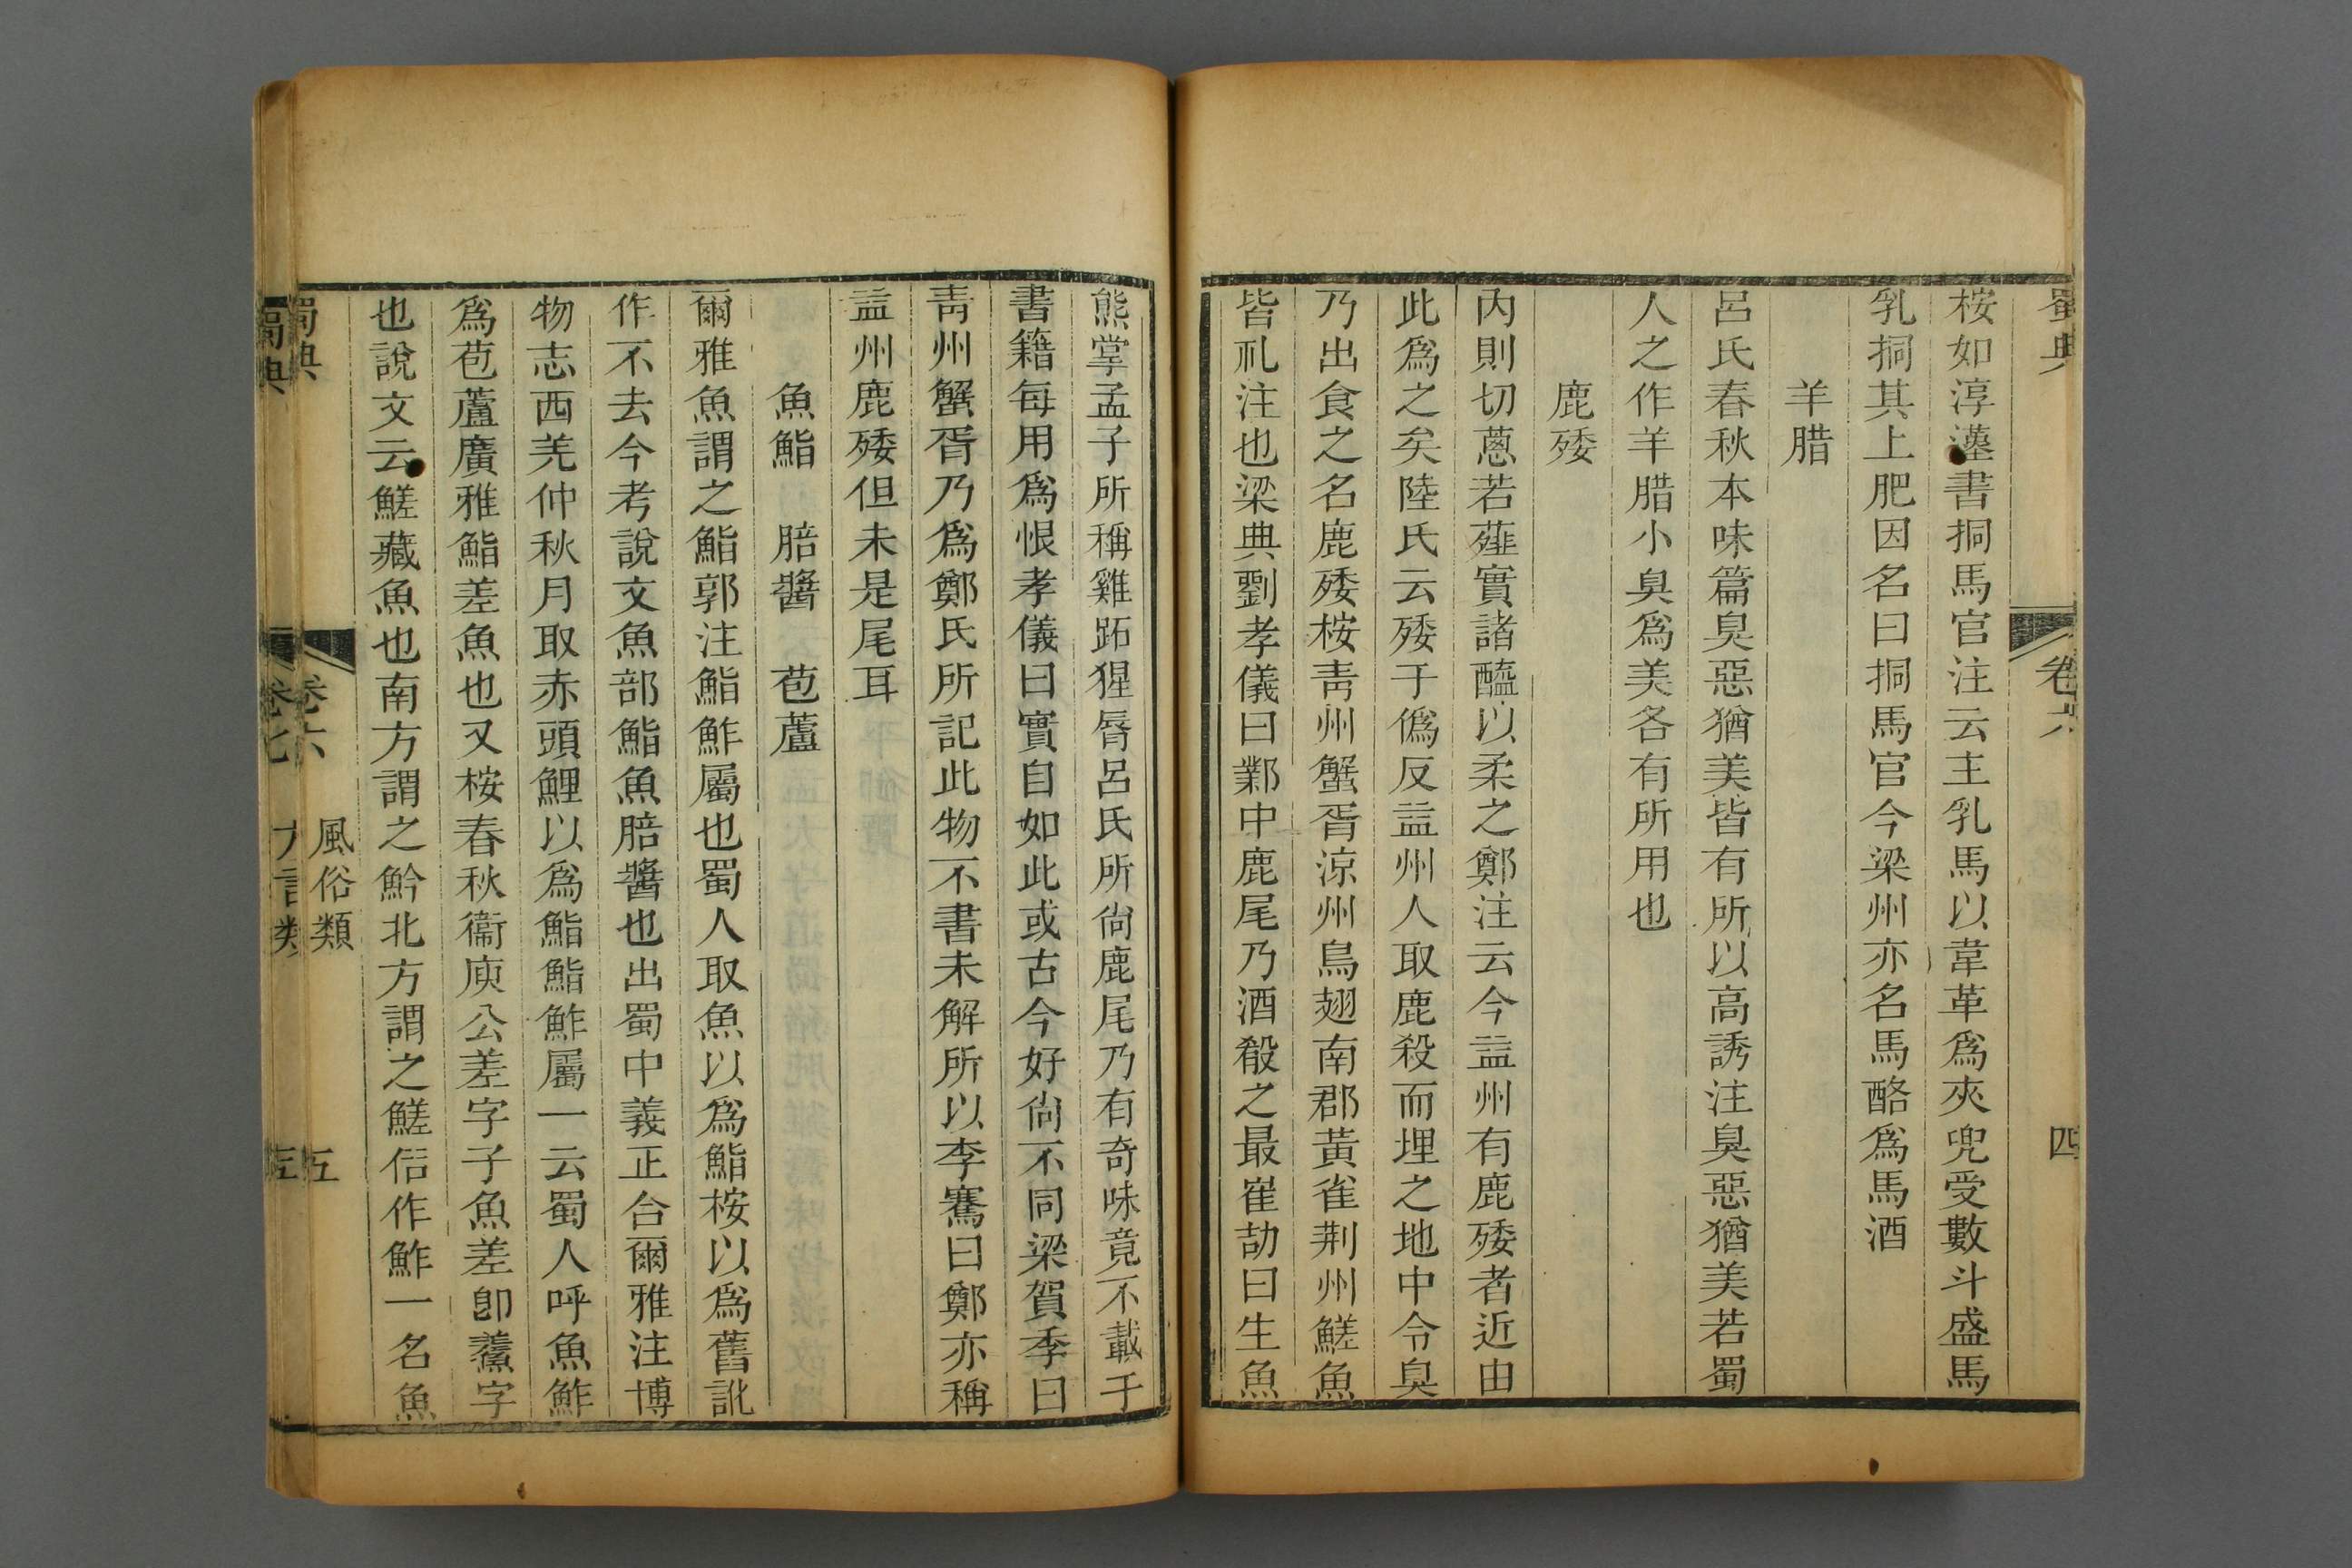 蜀典
卷六
四
桉如淳漢書挏馬官注云主乳馬以韋革爲夾兜受數斗盛馬
乳挏其上肥因名曰挏馬官今梁州亦名馬酪爲馬酒
羊腊
呂氏春秋本味篇臭惡猶美皆有所以高誘注臭惡猶美若蜀
人之作羊腊小臭爲美各有所用也
鹿䐚
內則切蔥若薤實諸醯以柔之鄭注云今益州有鹿䐚者近由
此爲之矣陸氏云䐚于僞反益州人取鹿殺而埋之地中令臭
乃出食之名鹿䐚桉靑州蟹胥涼州鳥翅南郡黃雀荆州䱹魚
皆禮注也梁典劉孝儀曰鄴中鹿尾乃酒殽之最崔劼曰生魚
熊掌孟子所稱雞跖猩脣呂氏所尙鹿尾乃有奇味竟不載于
書籍每用爲恨孝儀曰實自如此或古今好尙不同梁賀季曰
靑州蟹胥乃爲鄭氏所記此物不書未解所以李騫曰鄭亦稱
益州鹿䐚但未是尾耳
魚鮨　䐗醬　苞蘆
爾雅魚謂之鮨郭注鮨鮓屬也蜀人取魚以爲鮨桉以爲舊訛
作不去今考說文魚部鮨魚䐗醬也出蜀中義正合爾雅注博
物志西羌仲秋月取赤頭鯉以爲鮨鮨鮓屬一云蜀人呼魚鮓
爲苞蘆廣雅鮨差魚也又桉春秋衞庾公差字子魚差卽鮺字
也說文云䱹藏魚也南方謂之魿北方謂之䱹俗作鮓一名魚
蜀典
卷六
風俗類
五
蜀典
卷七
方言類